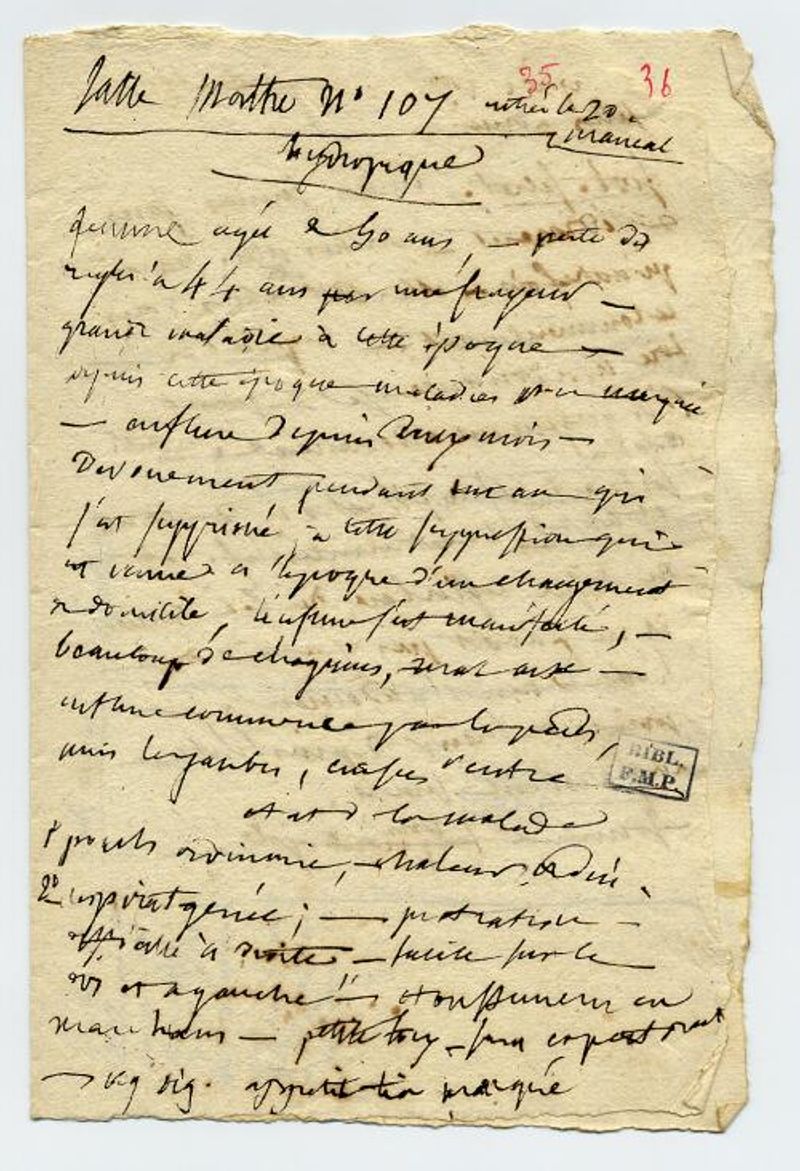 35 36
Salle Marthe N° 107 entrée le 20
hydropique
femme agée de 50 ans, — perte des
regles à 44 ans par une frayeur —
grande maladie à cette époque —
depuis cette époque maladies
— enflure depuis deux mois —
Devoiement pendant un an qui
s'est supprimé, à cette suppression qui
est venue à l'époque d'un changement
de domicile, l'enflure s'est manifestée, —
beaucoup de chagrins, —
enflure commencée par les pieds,
puis les jambes, cuisses ventre
BIBL. F.M.P.
etat de la malade
1° pouls ordinaire, — chaleur ordin.
2° respirat genée ; — prostration —
difficile à droite — facile sur le
dos et a gauche — etouffement en
marchant — petite toux — sans expectorat
— appetit marqué